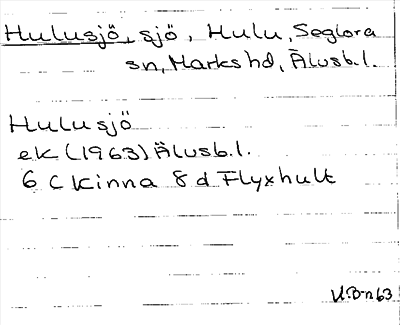 Hulusjö, sjö, Hulu, Seglora
sn, Marks hd, Älvsb.l.
Hulusjö
ek (1963) Älvsb.l.
6 C Kinna 8 d Flyxhult
U.B-n 63